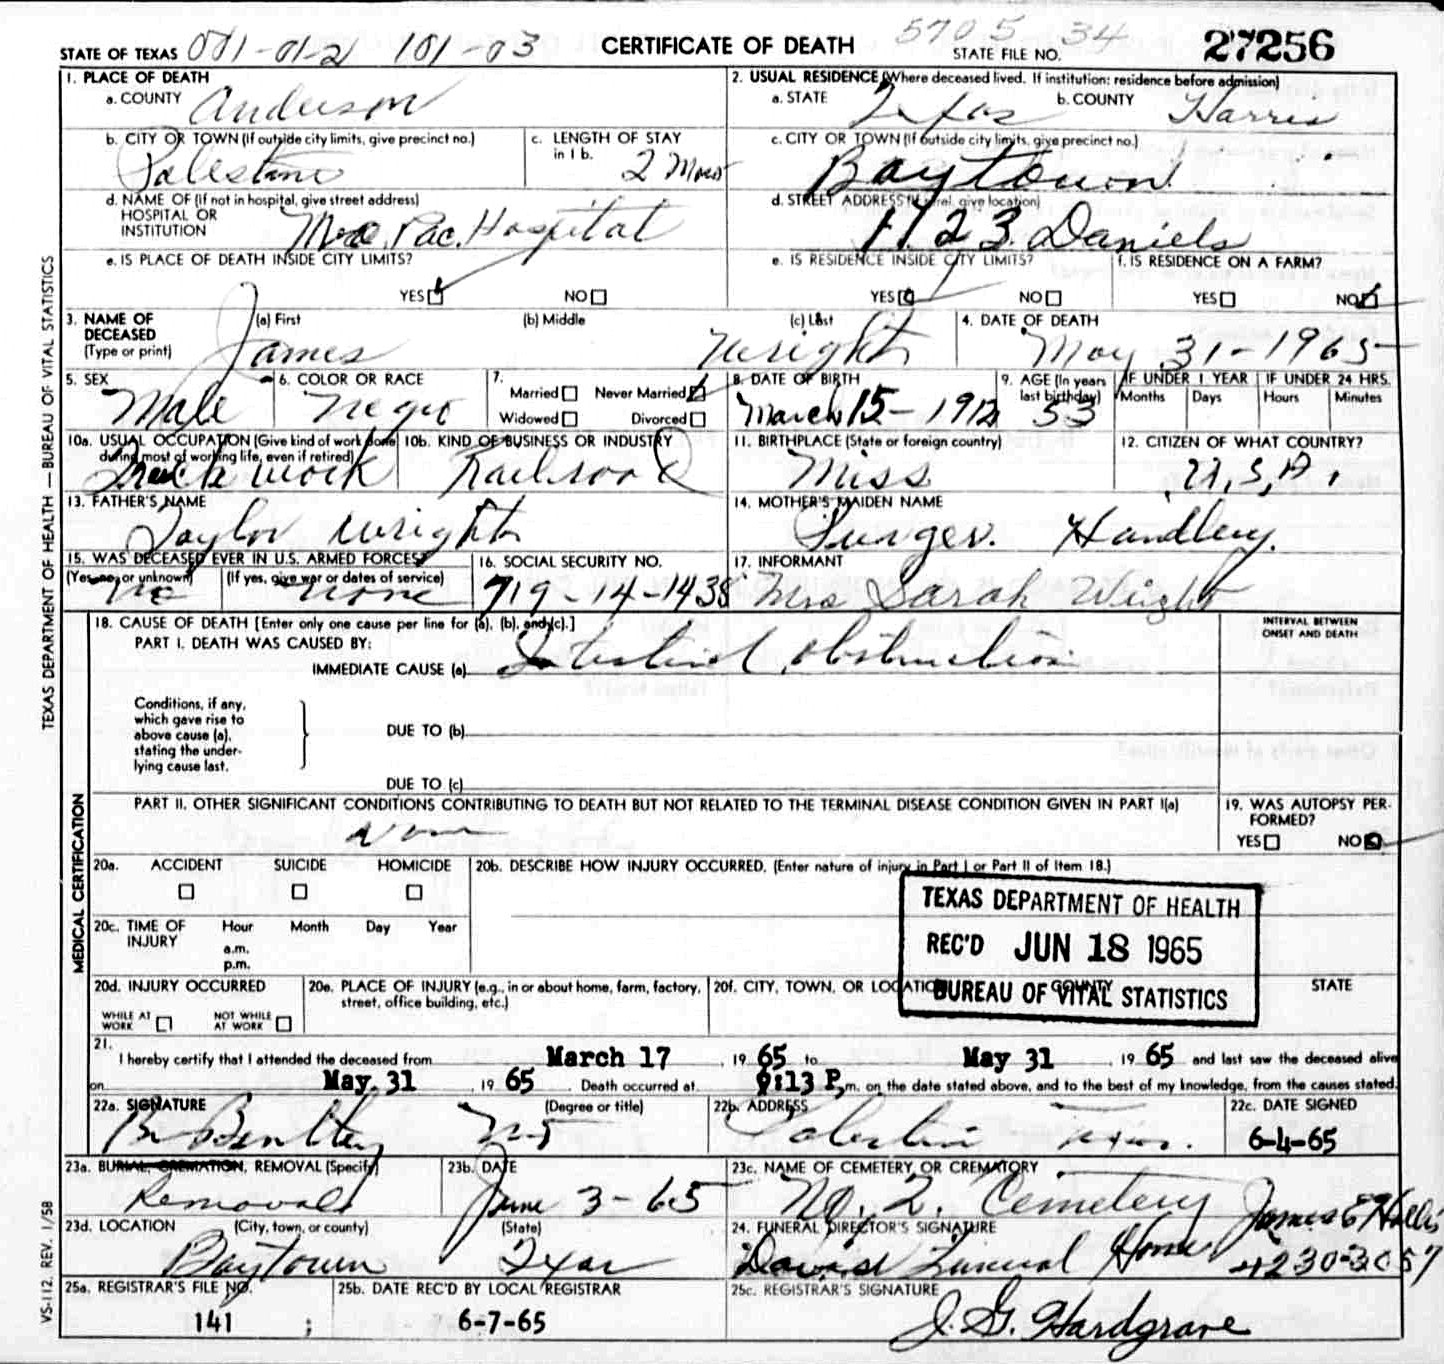 STATE OF TEXAS 001-01-2 101-03 CERTIFICATE OF DEATH 5705 34 STATE FILE NO. 27256
1. PLACE OF DEATH
a. COUNTY Anderson
2. USUAL RESIDENCE (Where deceased lived. If institution: residence before admission)
a. STATE Texas b. COUNTY Harris
b. CITY OR TOWN (If outside city limits, give precinct no.) Palestine
c. LENGTH OF STAY in 1 b. 2 Mos
c. CITY OR TOWN (If outside city limits, give precinct no.) Baytown
d. NAME OF (If not in hospital, give street address)
HOSPITAL OR
INSTITUTION Mo. Pac. Hospital
d. STREET ADDRESS (If rural, give location)
1123 Daniels
e. IS PLACE OF DEATH INSIDE CITY LIMITS?
YES NO
e. IS RESIDENCE INSIDE CITY LIMITS?
YES NO
f. IS RESIDENCE ON A FARM?
YES NO
3. NAME OF DECEASED (Type or print)
(a) First (b) Middle (c) Last
James Wright
4. DATE OF DEATH
May 31-1965
5. SEX
Male
6. COLOR OR RACE
Negro
7. Married Never Married
Widowed Divorced
8. DATE OF BIRTH
March 15-1912
9. AGE (In years last birthday) 53
IF UNDER 1 YEAR
Months Days
IF UNDER 24 HRS.
Hours Minutes
10a. USUAL OCCUPATION (Give kind of work done during most of working life, even if retired)
Track work
10b. KIND OF BUSINESS OR INDUSTRY
Railroad
11. BIRTHPLACE (State or foreign country)
Miss
12. CITIZEN OF WHAT COUNTRY?
U.S.A.
13. FATHER'S NAME
Taylor Wright
14. MOTHER'S MAIDEN NAME
Handley.
15. WAS DECEASED EVER IN U.S. ARMED FORCES?
(Yes, no, or unknown) (If yes, give war or dates of service)
No None
16. SOCIAL SECURITY NO.
719-14-1438
17. INFORMANT
Mrs Sarah Wright
18. CAUSE OF DEATH [Enter only one cause per line for (a), (b), and (c).]
PART I. DEATH WAS CAUSED BY:
IMMEDIATE CAUSE (a) Intestinal obstruction
INTERVAL BETWEEN
ONSET AND DEATH
Conditions, if any,
which gave rise to
above cause (a),
stating the under-
lying cause last.
DUE TO (b)
DUE TO (c)
PART II. OTHER SIGNIFICANT CONDITIONS CONTRIBUTING TO DEATH BUT NOT RELATED TO THE TERMINAL DISEASE CONDITION GIVEN IN PART I(a)
None
19. WAS AUTOPSY PER-
FORMED?
YES NO
20a. ACCIDENT SUICIDE HOMICIDE
20b. DESCRIBE HOW INJURY OCCURRED. (Enter nature of injury in Part I or Part II of Item 18.)
20c. TIME OF INJURY
Hour Month Day Year
a.m.
p.m.
TEXAS DEPARTMENT OF HEALTH
REC'D JUN 18 1965
BUREAU OF VITAL STATISTICS
20d. INJURY OCCURRED
WHILE AT WORK NOT WHILE AT WORK
20e. PLACE OF INJURY (e.g., in or about home, farm, factory,
street, office building, etc.)
20f. CITY, TOWN, OR LOCATION COUNTY STATE
21.
I hereby certify that I attended the deceased from March 17, 1965 to May 31, 1965 and last saw the deceased alive
on May. 31, 1965. Death occurred at 9:13 P.m. on the date stated above, and to the best of my knowledge, from the causes stated.
22a. SIGNATURE (Degree or title)
B. Bentley MD
22b. ADDRESS
Palestine Texas.
22c. DATE SIGNED
6-4-65
23a. BURIAL, CREMATION, REMOVAL (Specify)
Removal
23b. DATE
June 3-65
23c. NAME OF CEMETERY OR CREMATORY
No. 2. Cemetery
23d. LOCATION (City, town, or county) (State)
Baytown Texas
24. FUNERAL DIRECTOR'S SIGNATURE
James E Hollis
Funeral Home
25a. REGISTRAR'S FILE NO.
141
25b. DATE REC'D BY LOCAL REGISTRAR
6-7-65
25c. REGISTRAR'S SIGNATURE
J. G. Hardgrave
TEXAS DEPARTMENT OF HEALTH — BUREAU OF VITAL STATISTICS
MEDICAL CERTIFICATION
VS-112 REV. 1/58